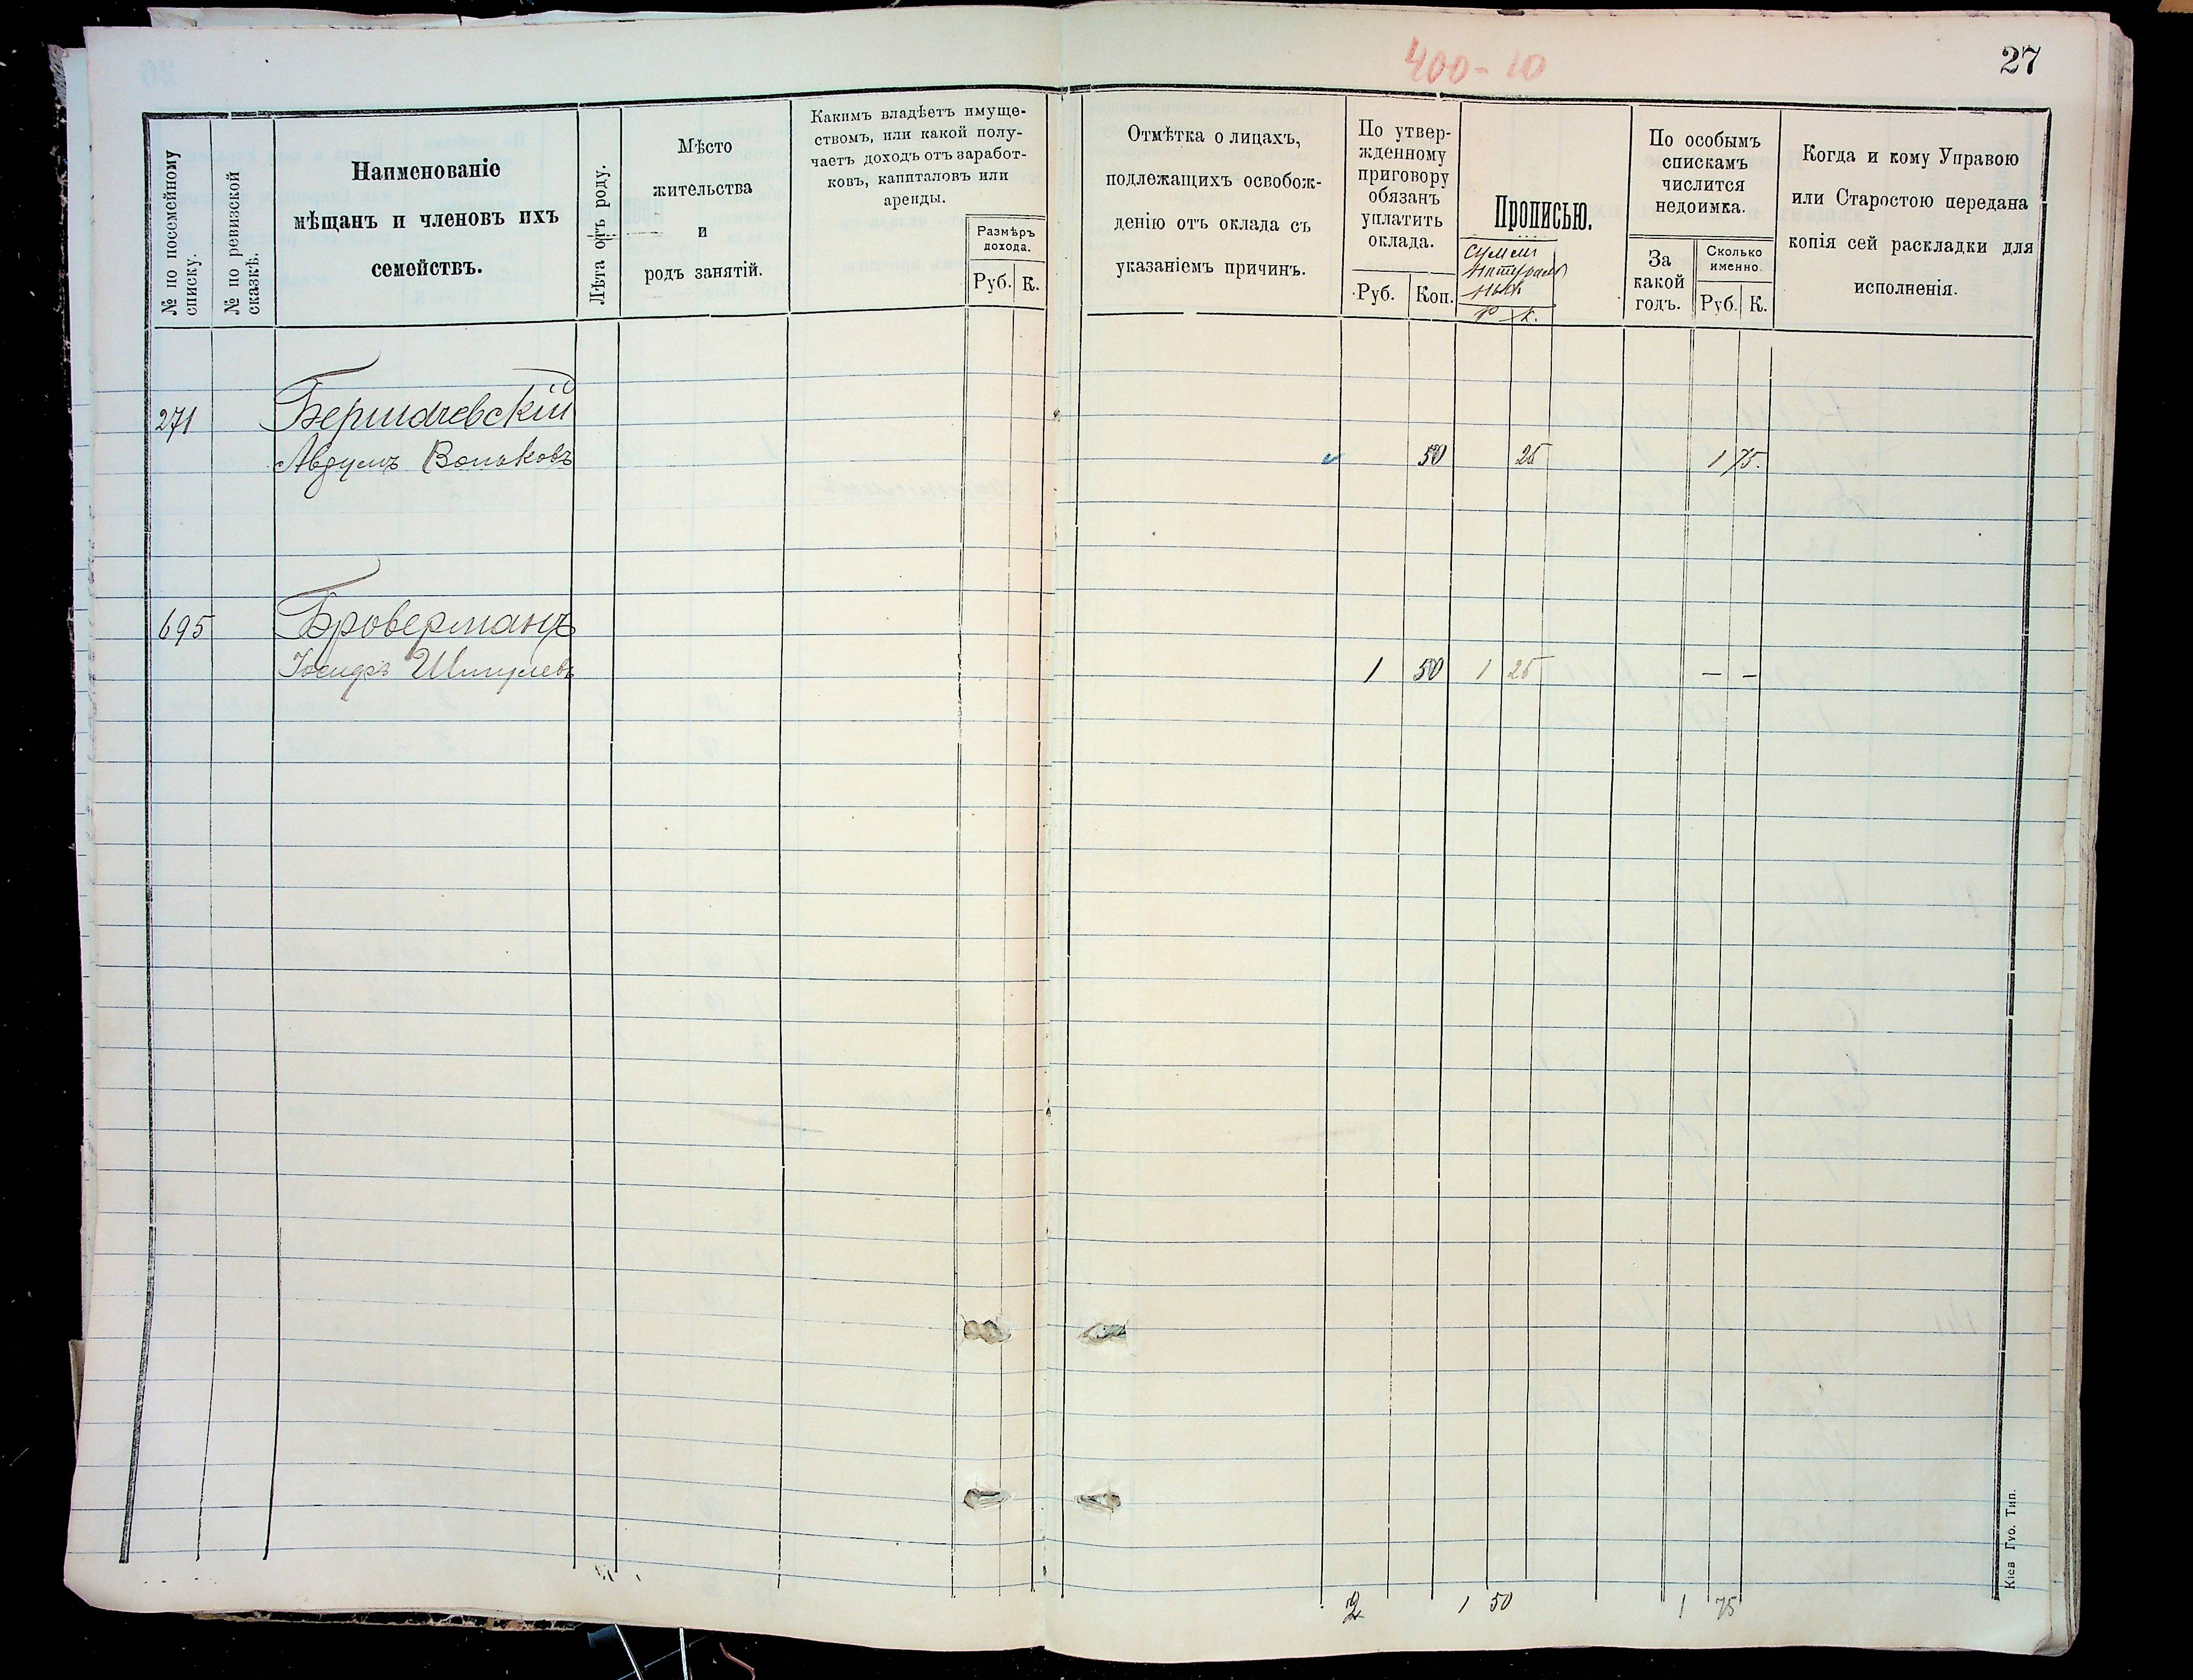 400-10
27
№ по посемейному
списку.
№ по ревизской
сказкѣ.
Наименованіе
мѣщанъ и членовъ ихъ
семействъ.
Лѣта отъ роду.
Мѣсто
жительства
и
родъ занятій.
Какимъ владѣетъ имуще-
ствомъ, или какой полу-
чаетъ доходъ отъ заработ-
ковъ, капиталовъ или
аренды.
Размѣръ
дохода.
Руб. К.
Отмѣтка о лицахъ,
подлежащихъ освобож-
денію отъ оклада съ
указаніемъ причинъ.
По утвер-
жденному
приговору
обязанъ
уплатить
оклада.
Руб. Коп.
Прописью.
Р К.
По особымъ
спискамъ
числится
недоимка.
За
какой
годъ.
Сколько
именно.
Руб. К.
Когда и кому Управою
или Старостою передана
копія сей раскладки для
исполненія.
271 Бердичевскій
50 25 1 75.
695 Броверманъ
Іосифъ Шмулевъ 1 50 1 25 — —
2 1 50 1 75
Кіев Губ. Тип.